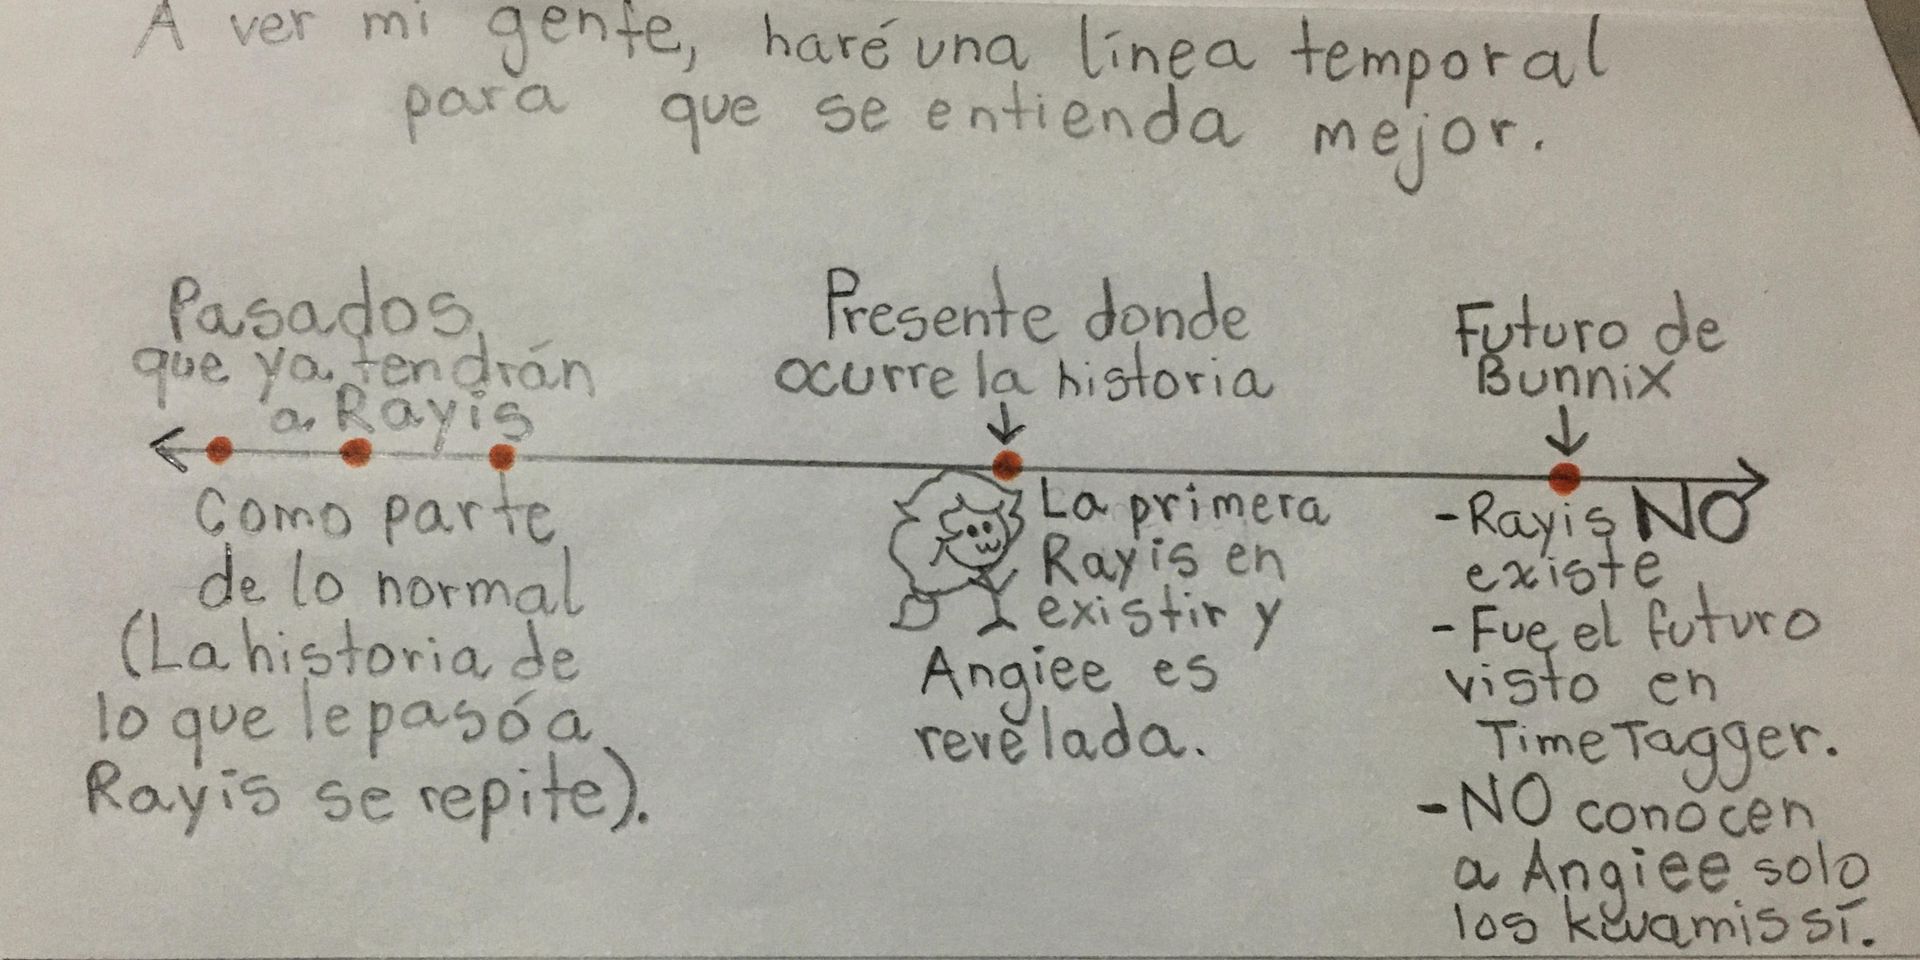 A ver mi gente, haré una línea temporal
para que se entienda mejor.
Pasados
que ya tendrán
a Rayis
Como parte
de lo normal
(La historia de
lo que le pasó a
Rayis se repite).
Presente donde
ocurre la historia
La primera
Rayis en
existir y
Angiee es
revelada.
Futuro de
Bunnix
-Rayis NO
existe
-Fue el futuro
visto en
TimeTagger.
-NO conocen
a Angiee solo
los kwamis sí.